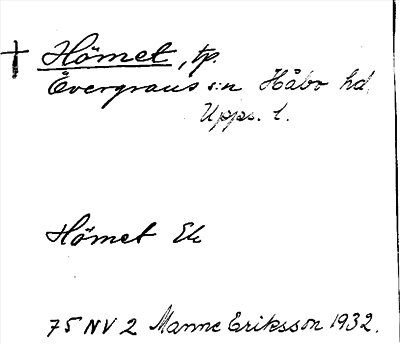 † Hömet, tp.
Övergrans s:n Håbo hd.
Upps. l.
Hömet Ek
75 NV 2 Manne Eriksson 1932.